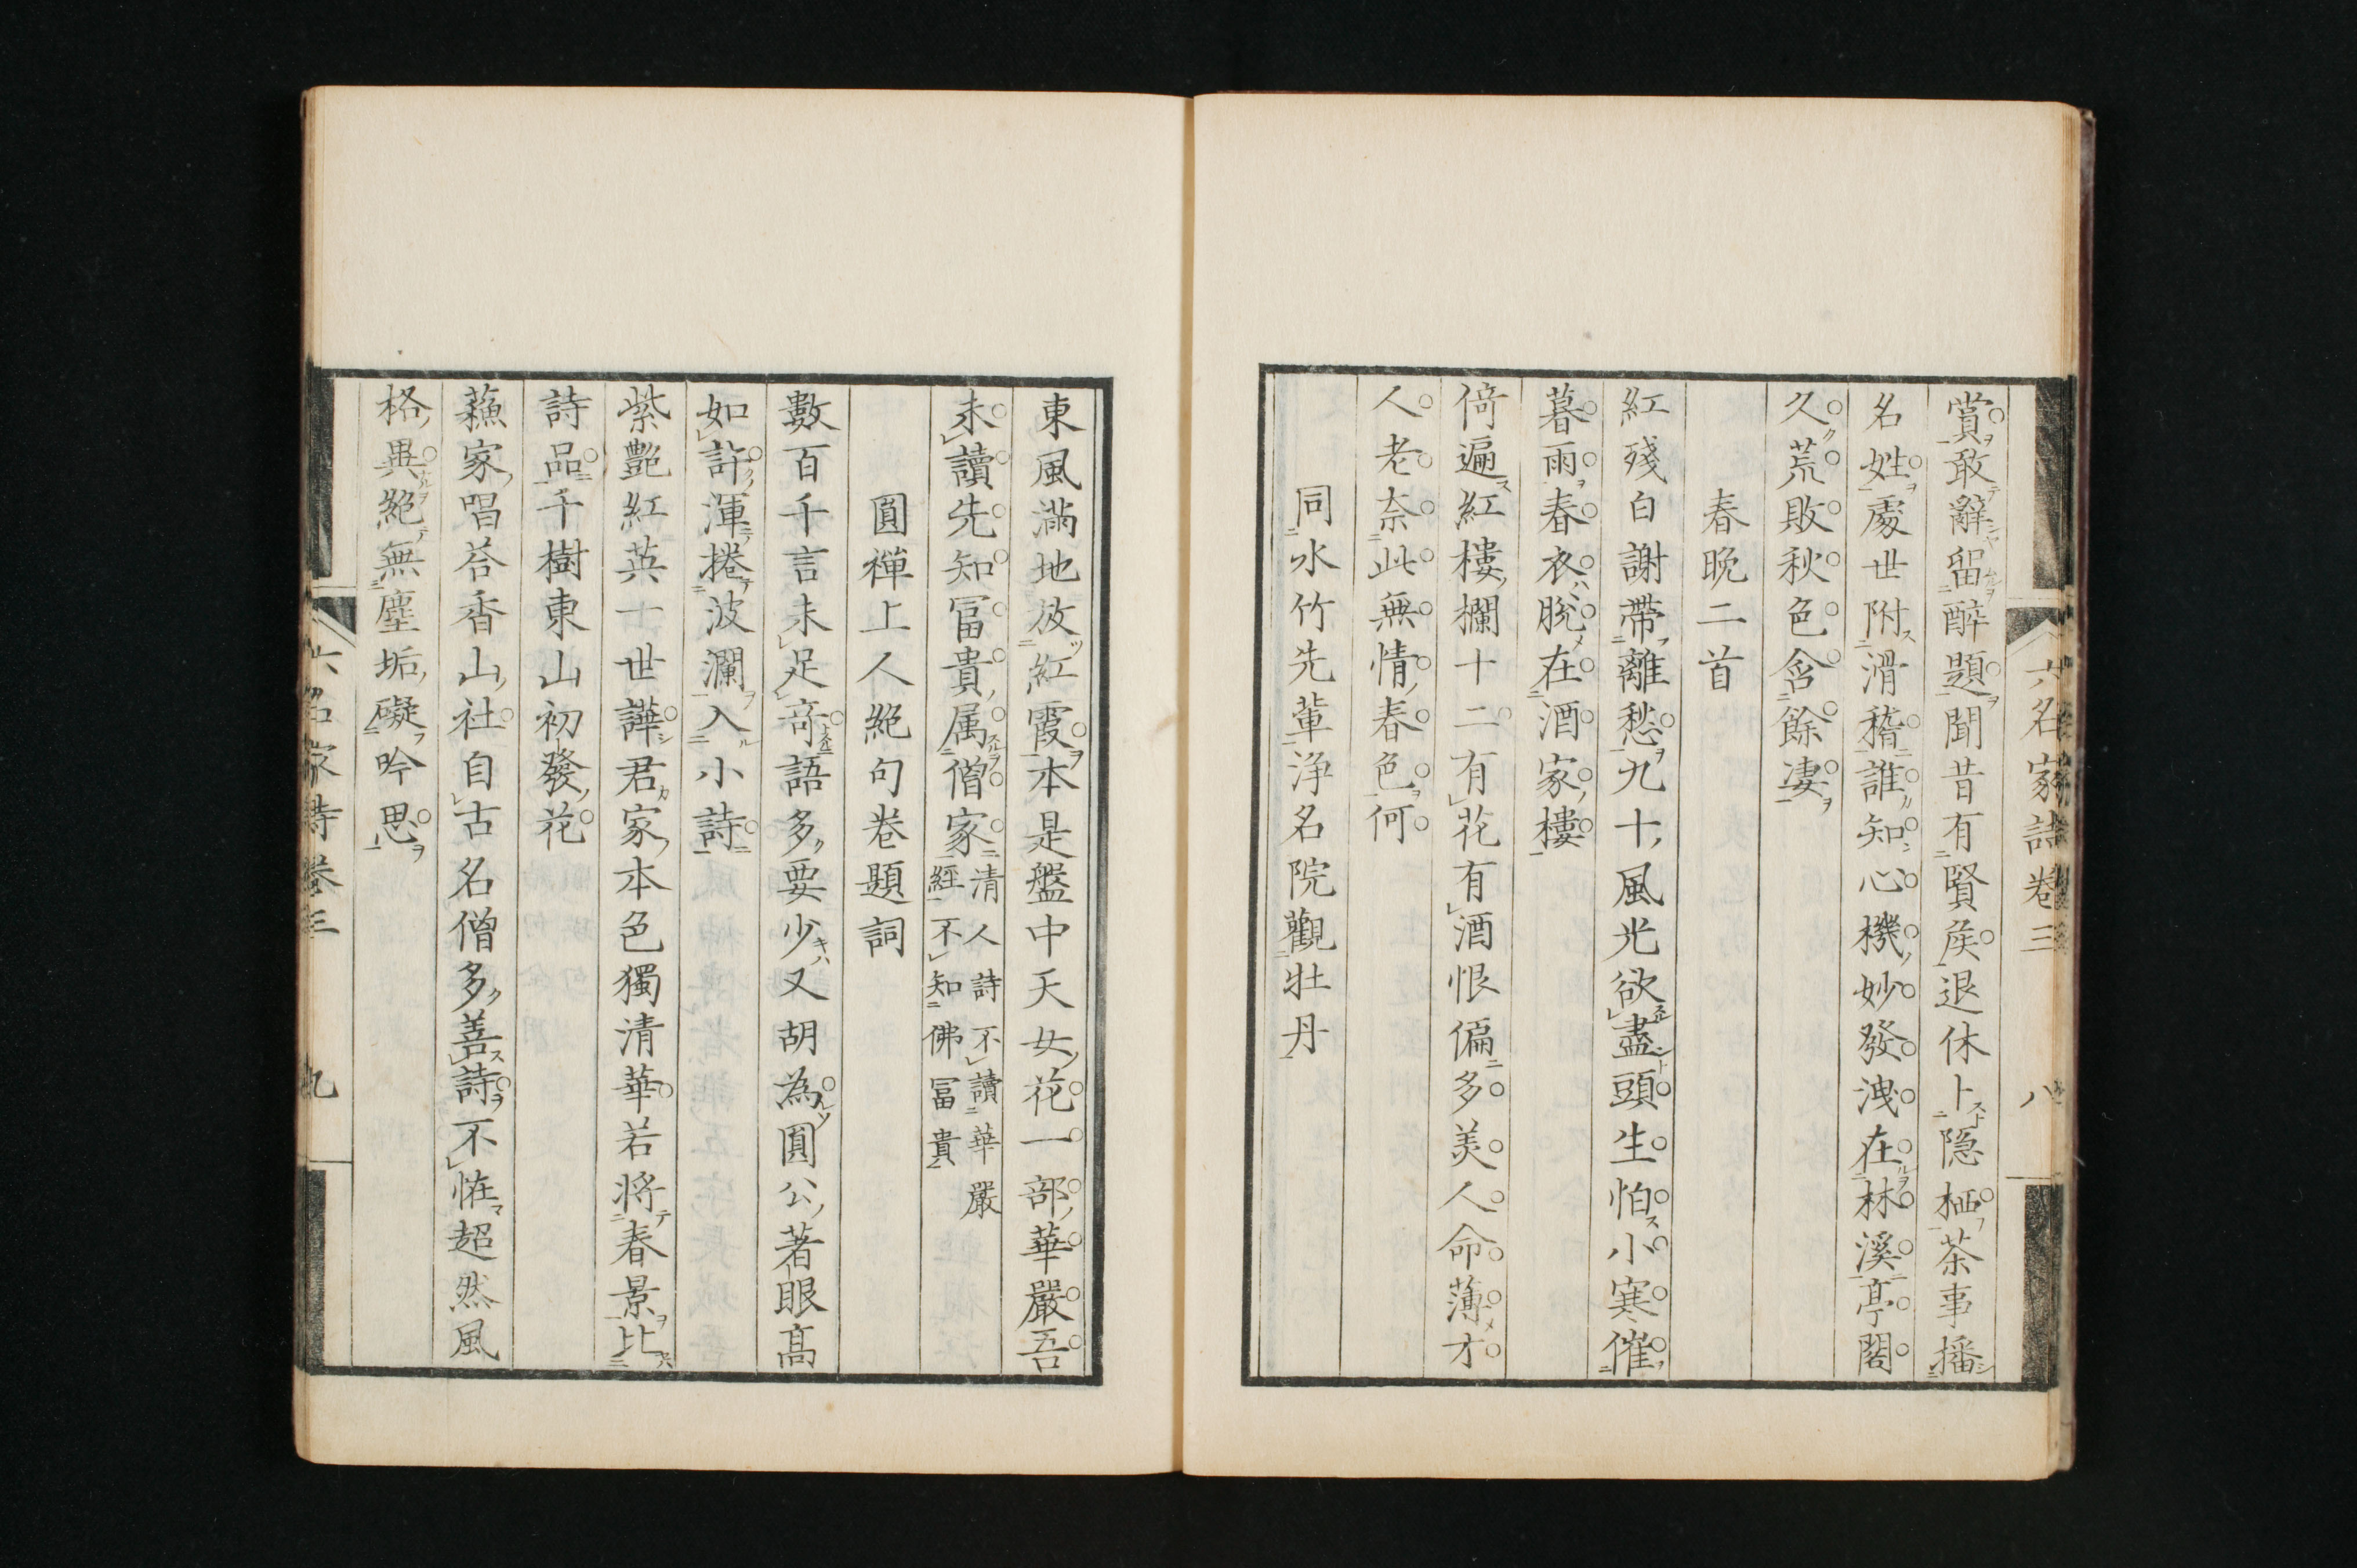 六名家詩卷三 八
賞敢辭留醉題聞昔有賢矦退休卜隱栖茶事播
名姓處世附滑稽誰知心機妙發洩在林溪亭閣
久荒敗秋色含餘凄
春晚二首
紅殘白謝帶離愁九十風光欲盡頭生怕小寒催
暮雨春衣脫在酒家樓
倚遍紅樓欄十二有花有酒恨偏多美人命薄才
人老奈此無情春色何
同水竹先輩淨名院觀牡丹
東風滿地放紅霞本是盤中天女花一部華嚴吾
未讀先知冨貴属僧家清人詩不讀華嚴
經不知佛冨貴
圓禪上人絕句卷題詞
數百千言未足竒語多要少又胡為圓公著眼高
如許渾捲波瀾入小詩
紫艷紅英十世譁君家本色獨清華若將春景比
詩品千樹東山初發花
蘓家唱荅香山社自古名僧多善詩不恠超然風
格異絕無塵垢礙吟思
六名家詩卷三 九